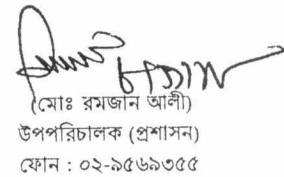 (মোঃ রমজান আলী)
উপপরিচালক (প্রশাসন)
ফোন : ০২-৯৫৬৯৩৫৫